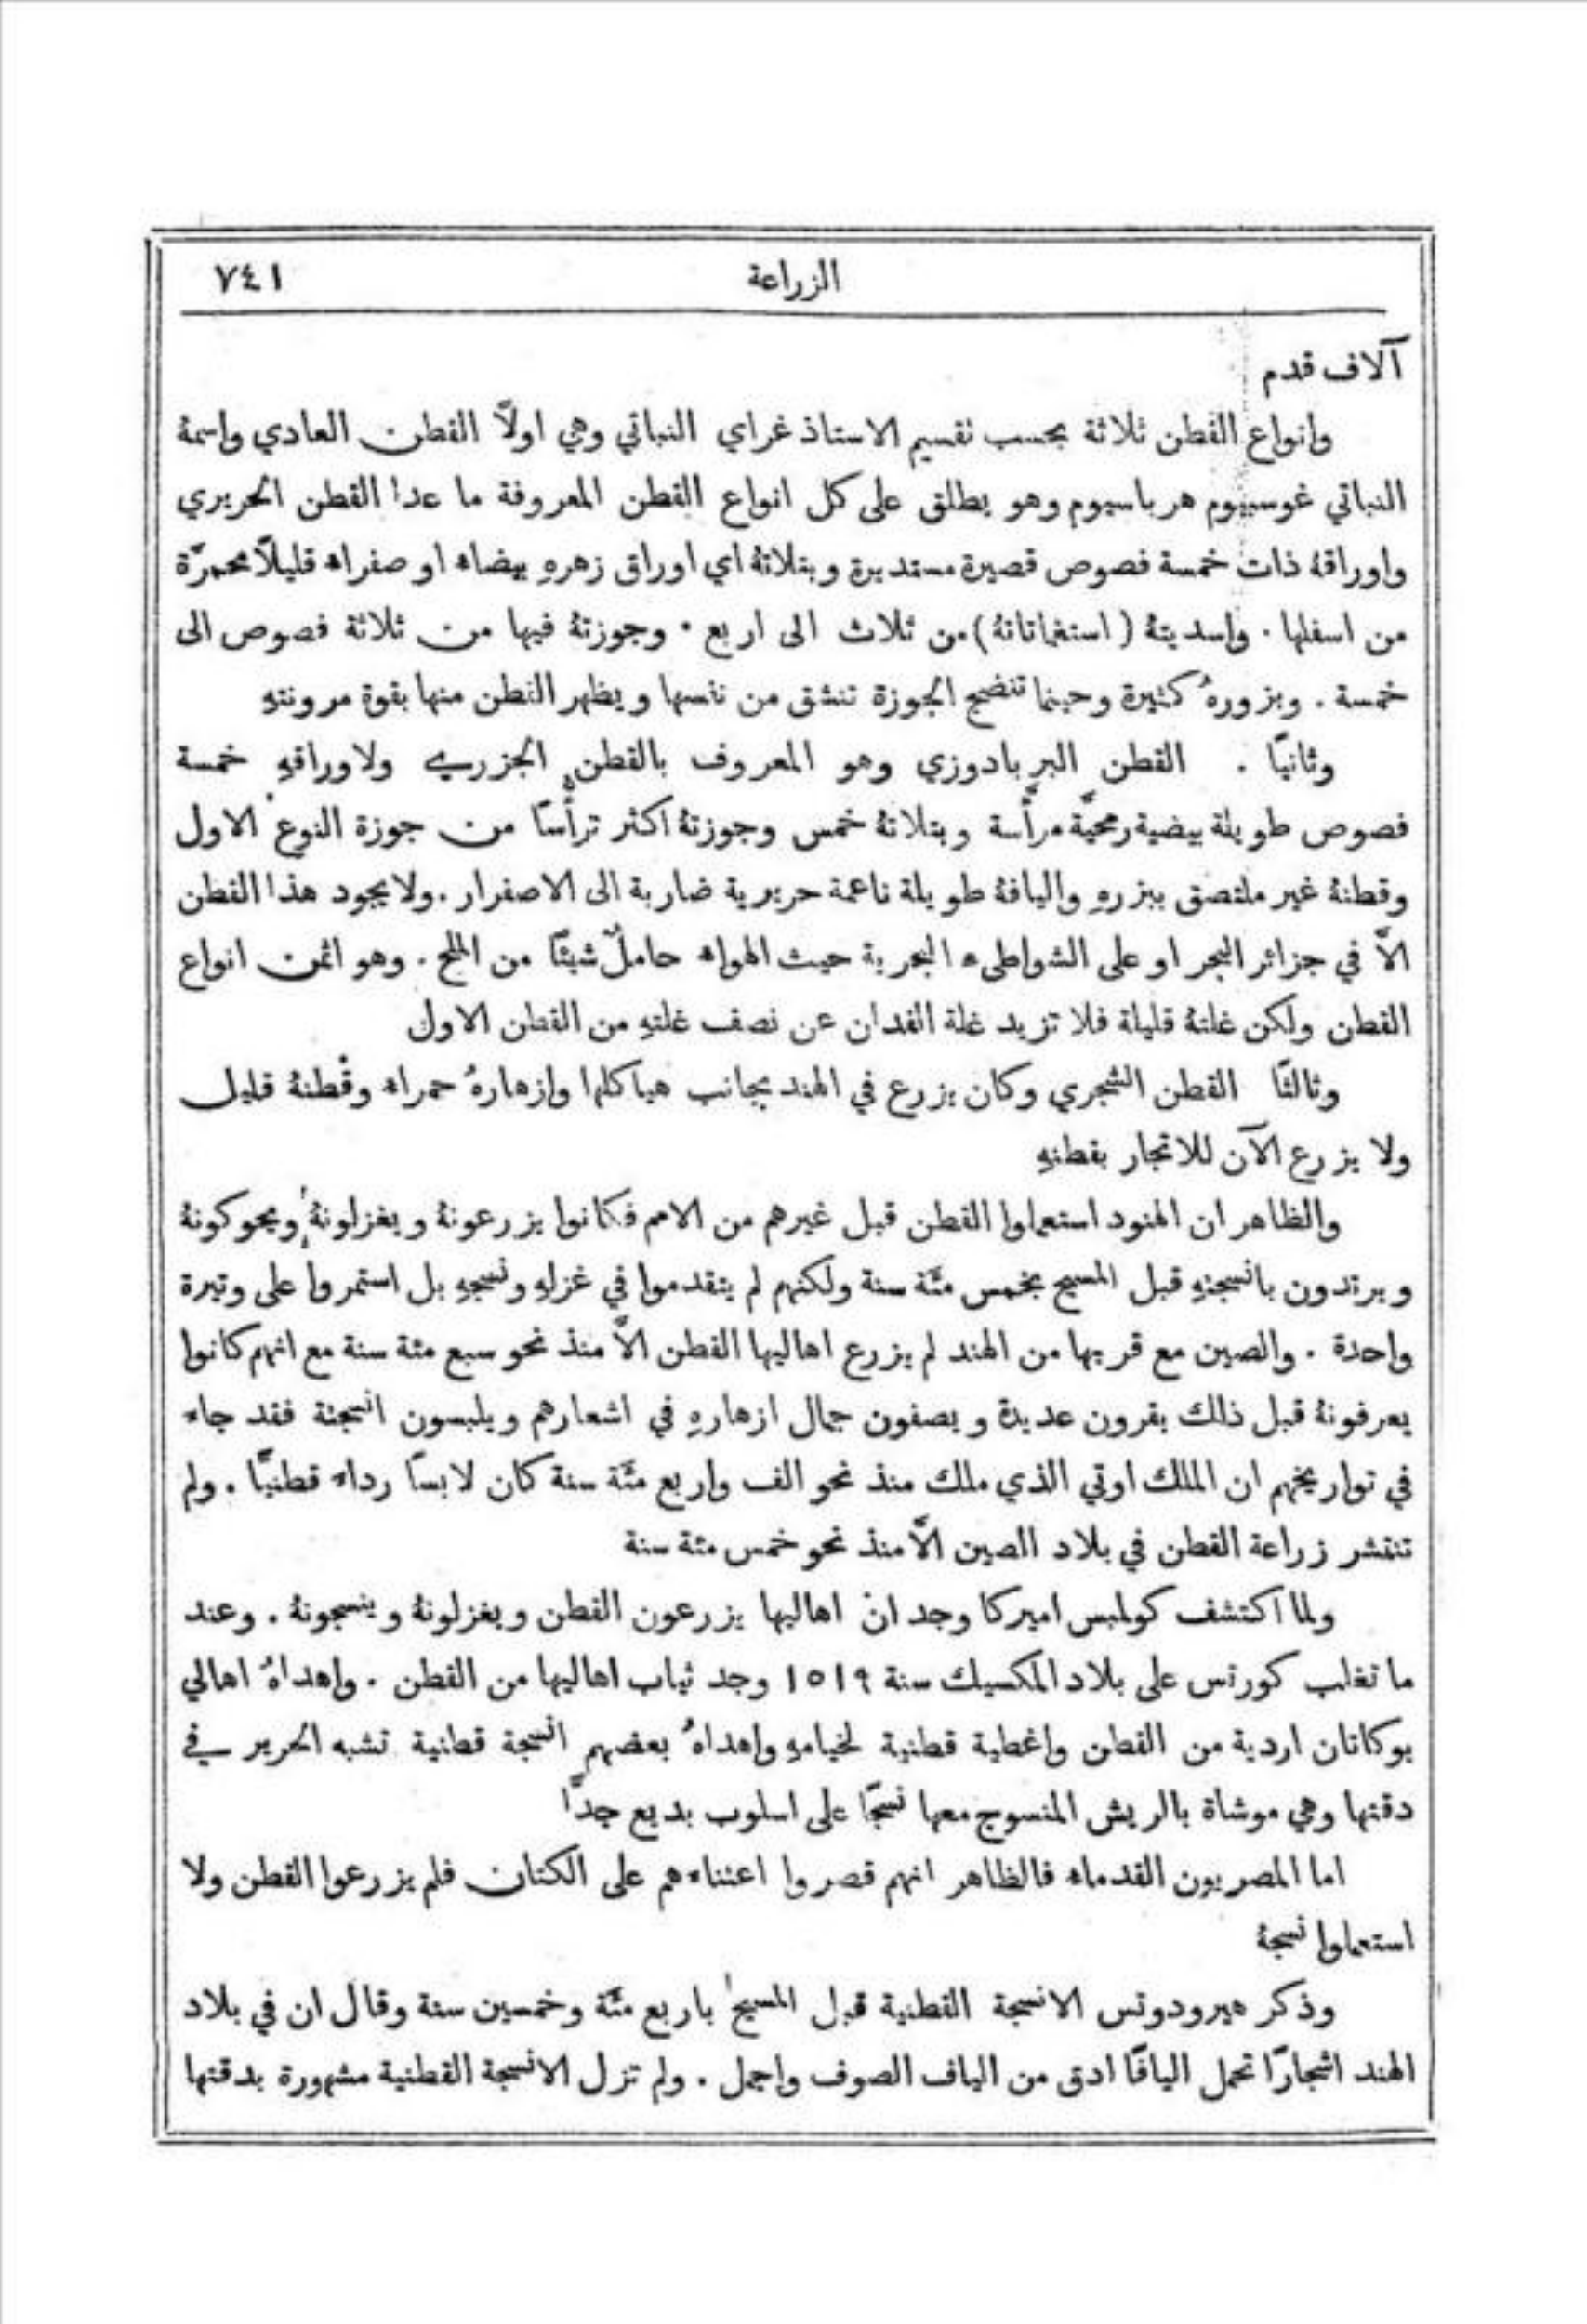 الزراعة ٧٤١
آلاف قدم
وانواع القطن ثلاثة بحسب تقسيم الاستاذ غراي النباتي وهي اولاً القطن العادي واسمهُ
النباتي غوسيبيوم هرباسيوم وهو يطلق على كل انواع القطن المعروفة ما عدا القطن الحريري
واوراقهُ ذات خمسة فصوص قصيرة مستديرة وبتلاتهُ اي اوراق زهرهِ بيضاء او صفراء قليلاً محمرّة
من اسفلها . واسديتهُ (استغماتاتهُ) من ثلاث الى اربع . وجوزتهُ فيها من ثلاثة فصوص الى
خمسة . وبزورهُ كثيرة وحينما تنضج الجوزة تنشق من نفسها ويظهر القطن منها بقوة مرونتهِ
وثانيًا . القطن البربادوزي وهو المعروف بالقطن الجزري ولاوراقهِ خمسة
فصوص طويلة بيضية رمحيَّة مرأَّسة وبتلاتهُ خمس وجوزتهُ اكثر ترأُّسًا من جوزة النوع الاول
وقطنهُ غير ملتصق ببزرهِ واليافهُ طويلة ناعمة حريرية ضاربة الى الاصفرار . ولا يجود هذا القطن
الاَّ في جزائر البحر او على الشواطىء البحرية حيث الهواء حاملٌ شيئًا من الملح . وهو اثمن انواع
القطن ولكن غلتهُ قليلة فلا تزيد غلة الفدان عن نصف غلتهِ من القطن الاول
وثالثًا القطن الشجري وكان يزرع في الهند بجانب هياكلها وازهارهُ حمراء وقطنهُ قليل
ولا يزرع الآن للاتجار بقطنهِ
والظاهر ان الهنود استعملوا القطن قبل غيرهم من الامم فكانوا يزرعونهُ ويغزلونهُ ويحوكونهُ
ويرتدون بانسجتهِ قبل المسيح بخمس مئَة سنة ولكنهم لم يتقدموا في غزلهِ ونسجهِ بل استمروا على وتيرة
واحدة . والصين مع قربها من الهند لم يزرع اهاليها القطن الاَّ منذ نحو سبع مئة سنة مع انهم كانوا
يعرفونهُ قبل ذلك بقرون عديدة ويصفون جمال ازهارهِ في اشعارهم ويلبسون انسجتهُ فقد جاء
في تواريخهم ان الملك اوتي الذي ملك منذ نحو الف واربع مئَة سنة كان لابسًا رداء قطنيًّا . ولم
تنتشر زراعة القطن في بلاد الصين الاَّ منذ نحو خمس مئة سنة
ولما اكتشف كولمبس اميركا وجد ان اهاليها يزرعون القطن ويغزلونهُ وينسجونهُ . وعند
ما تغلب كورتس على بلاد المكسيك سنة ١٥١٩ وجد ثياب اهاليها من القطن . واهداهُ اهالي
يوكاتان اردية من القطن واغطية قطنية لخيامهِ واهداهُ بعضهم انسجة قطنية تشبه الحرير في
دقتها وهي موشاة بالريش المنسوج معها نسجًا على اسلوب بديع جدًّا
اما المصريون القدماء فالظاهر انهم قصروا اعتناءهم على الكتان فلم يزرعوا القطن ولا
استعملوا نسجهُ
وذكر هيرودوتس الانسجة القطنية قبل المسيح باربع مئَة وخمسين سنة وقال ان في بلاد
الهند اشجارًا تحمل اليافًا ادق من الياف الصوف واجمل . ولم تزل الانسجة القطنية مشهورة بدقتها